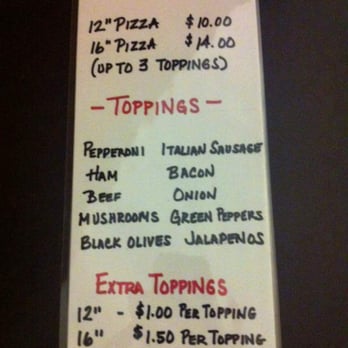 12" PIZZA $10.00
16" PIZZA $14.00
(UP TO 3 TOPPINGS)
- TOPPINGS -
PEPPERONI ITALIAN SAUSAGE
HAM BACON
BEEF ONION
MUSHROOMS GREEN PEPPERS
BLACK OLIVES JALAPENOS
EXTRA TOPPINGS
12" - $1.00 PER TOPPING
16" $1.50 PER TOPPING